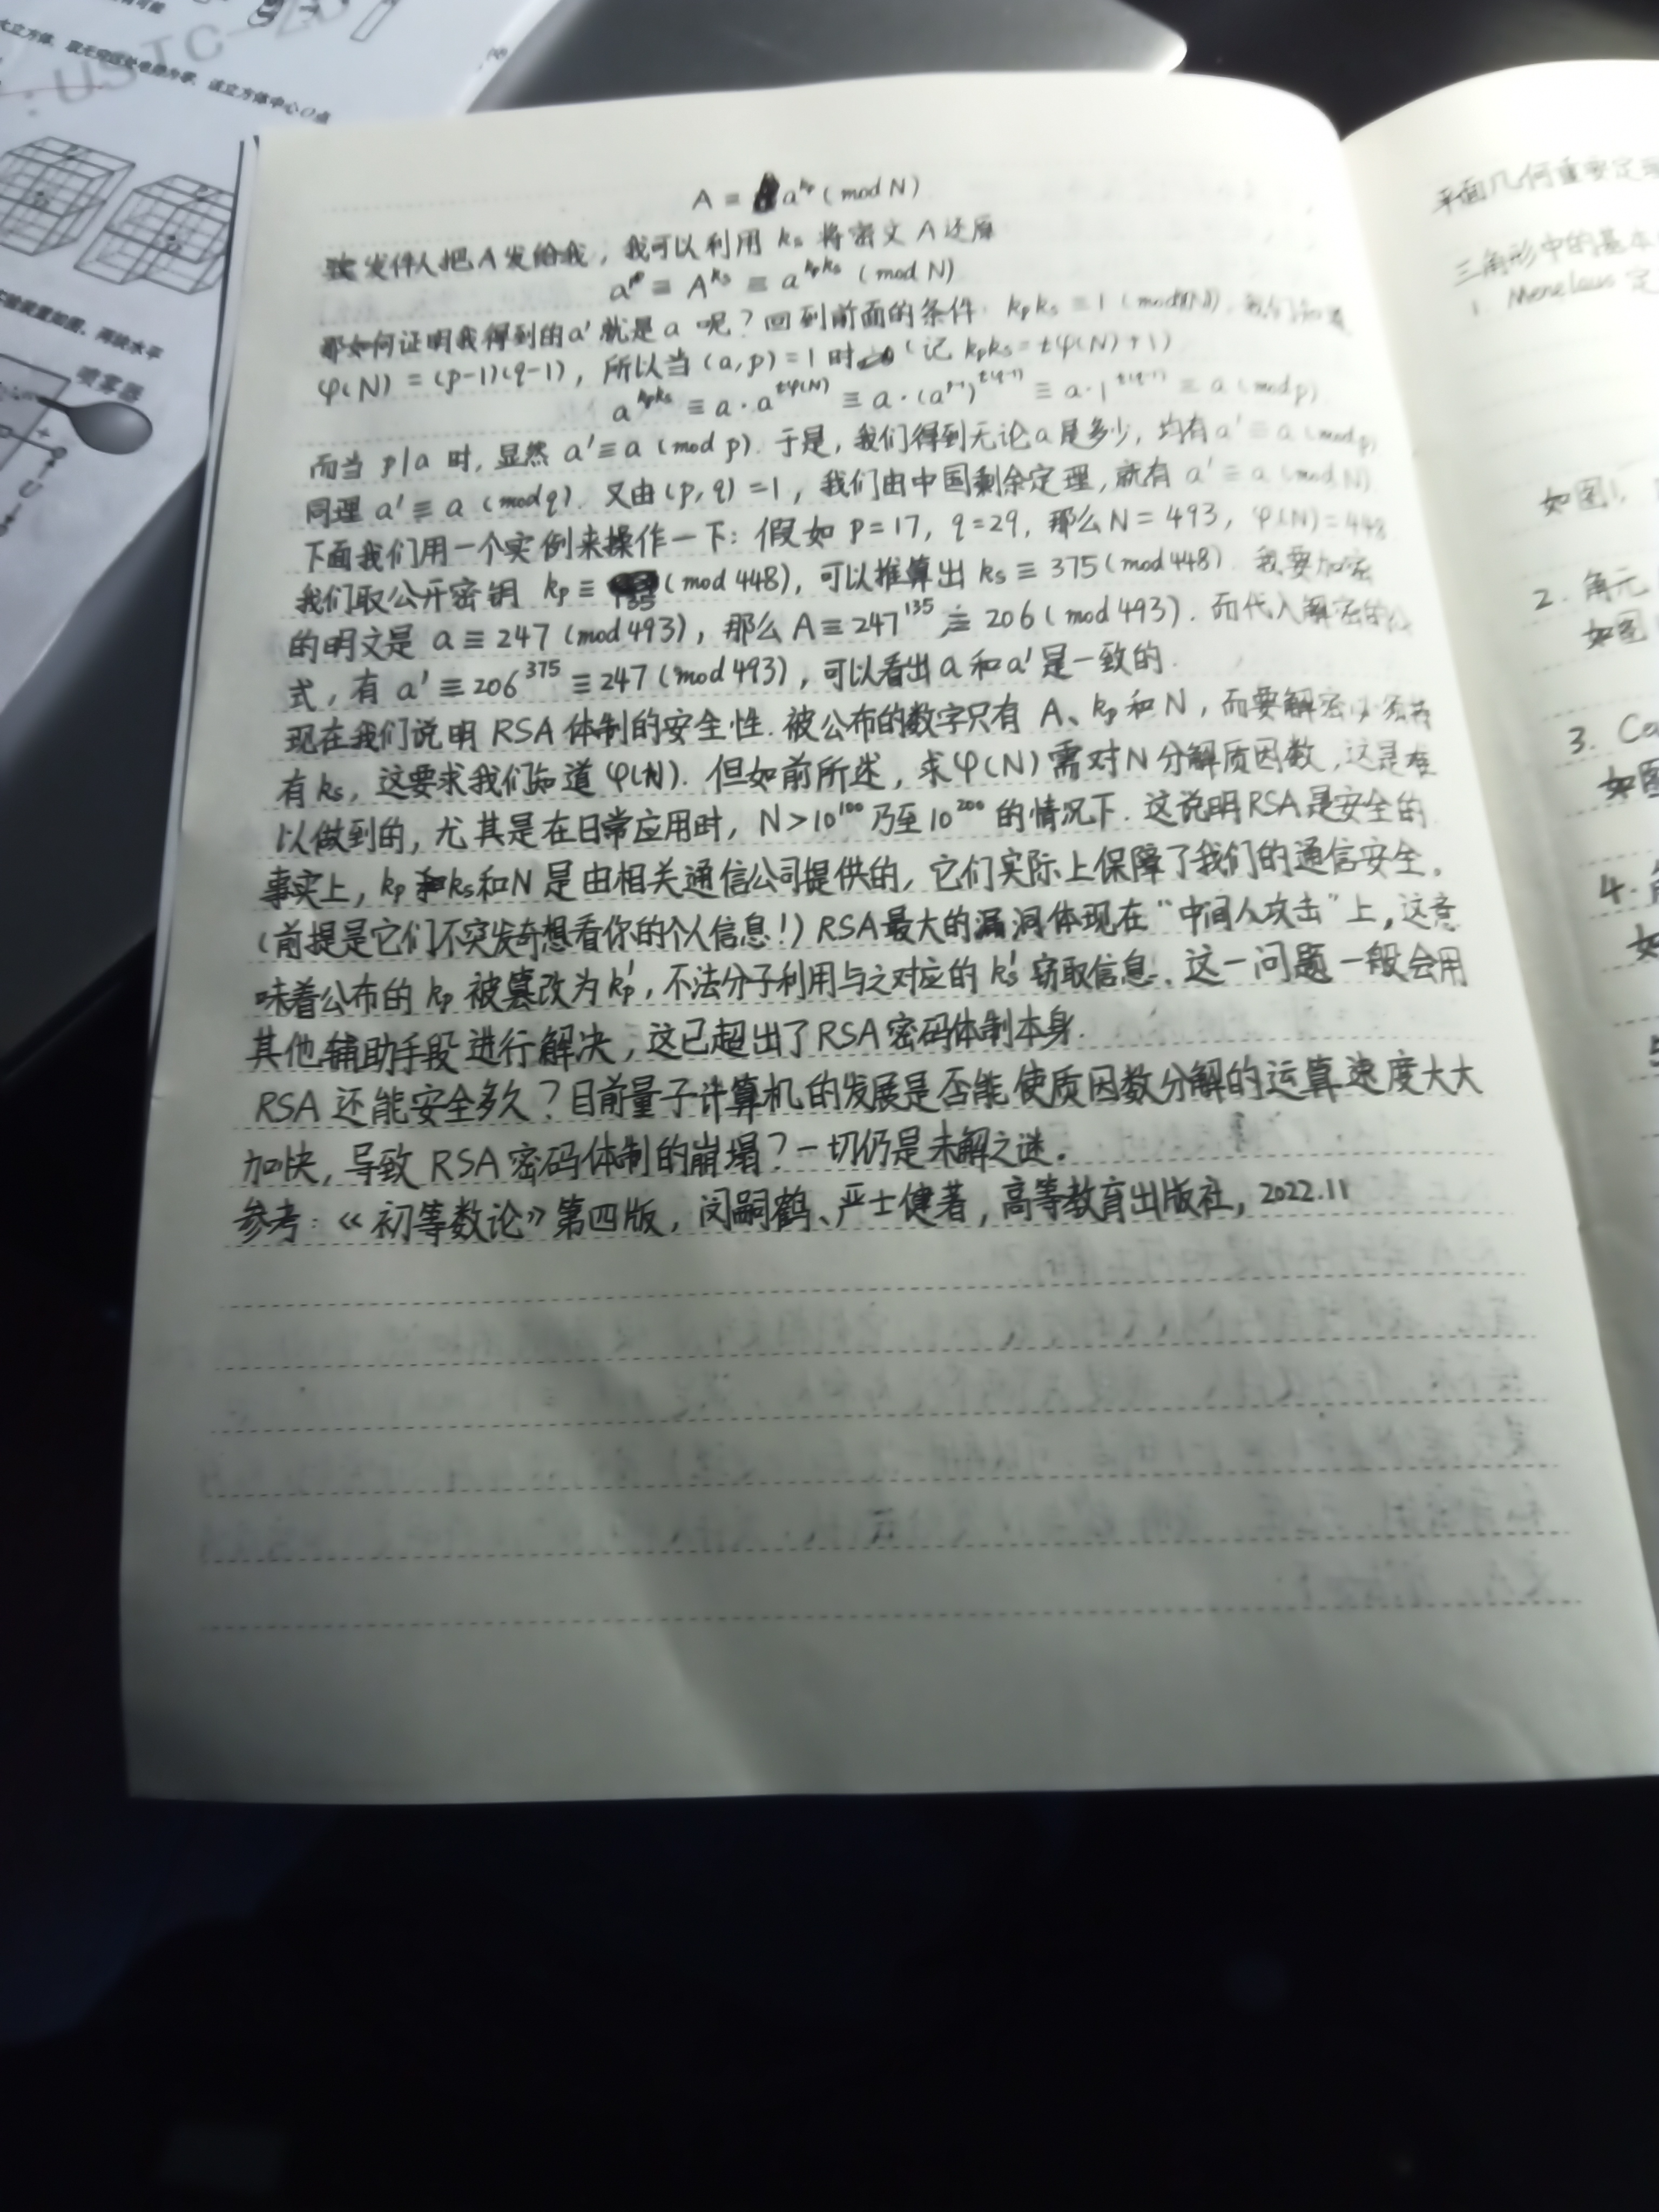 A ≡ a^kp (mod N)
发件人把A发给我，我可以利用 ks 将密文 A 还原
a' ≡ A^ks ≡ a^kpks (mod N)
那如何证明我得到的a'就是a 呢？回到前面的条件 kpks ≡ 1 (mod φ(N)), 我们知道
φ(N) = (p-1)(q-1)，所以当 (a,p)=1 时 (记 kpks = tφ(N)+1)
a^kpks ≡ a·a^tφ(N) ≡ a·(a^p-1)^t(q-1) ≡ a·1^t(q-1) ≡ a (mod p)
而当 p|a 时, 显然 a'≡a (mod p). 于是, 我们得到无论a是多少, 均有 a' ≡ a (mod p)
同理 a' ≡ a (mod q). 又由 (p,q)=1, 我们由中国剩余定理, 就有 a' ≡ a (mod N)
下面我们用一个实例来操作一下：假如 p=17, q=29, 那么 N=493, φ(N)=448
我们取公开密钥 kp ≡ 135 (mod 448), 可以推算出 ks ≡ 375 (mod 448). 我要加密
的明文是 a ≡ 247 (mod 493), 那么 A ≡ 247^135 ≡ 206 (mod 493). 而代入解密的公
式, 有 a' ≡ 206^375 ≡ 247 (mod 493), 可以看出 a 和 a' 是一致的.
现在我们说明 RSA 体制的安全性. 被公布的数字只有 A、kp 和 N, 而要解密必须有
有 ks, 这要求我们知道 φ(N). 但如前所述, 求φ(N) 需对 N 分解质因数, 这是难
以做到的, 尤其是在日常应用时, N>10^100 乃至 10^200 的情况下. 这说明RSA是安全的
事实上, kp 和ks和N 是由相关通信公司提供的, 它们实际上保障了我们的通信安全.
(前提是它们不突发奇想看你的个人信息!) RSA最大的漏洞体现在“中间人攻击”上, 这意
味着公布的 kp 被篡改为 kp', 不法分子利用与之对应的 ks' 窃取信息. 这一问题一般会用
其他辅助手段进行解决, 这已超出了 RSA 密码体制本身.
RSA 还能安全多久？目前量子计算机的发展是否能使质因数分解的运算速度大大
加快, 导致 RSA 密码体制的崩塌？一切仍是未解之谜.
参考：《初等数论》第四版, 闵嗣鹤、严士健著, 高等教育出版社, 2022.11
平面几何重要定
三角形中的基本
1. Menelaus 定
如图1,
2. 角元
如图
3.
如图
4.
如
5
大立方体
该立方体中心O点
喷雾器